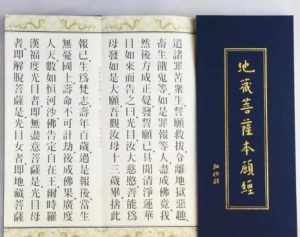 地藏菩薩本願經
道諸罪苦眾生誓願救拔令離地獄惡趣
畜生餓鬼等如是罪報等人盡成佛竟我
然後方成正覺發誓願已具聞清淨蓮華
目如來而告之曰光目汝大慈愍善能為
母發如是大願吾觀汝母十三歲畢捨此
報已生為梵志壽年百歲過是報後當生
無憂國土壽命不可計劫後成佛果廣度
人天數如恆河沙佛告定自在王爾時羅
漢福度光目者即無盡意菩薩是光目母
者即解脫菩薩是光目女者即地藏菩薩